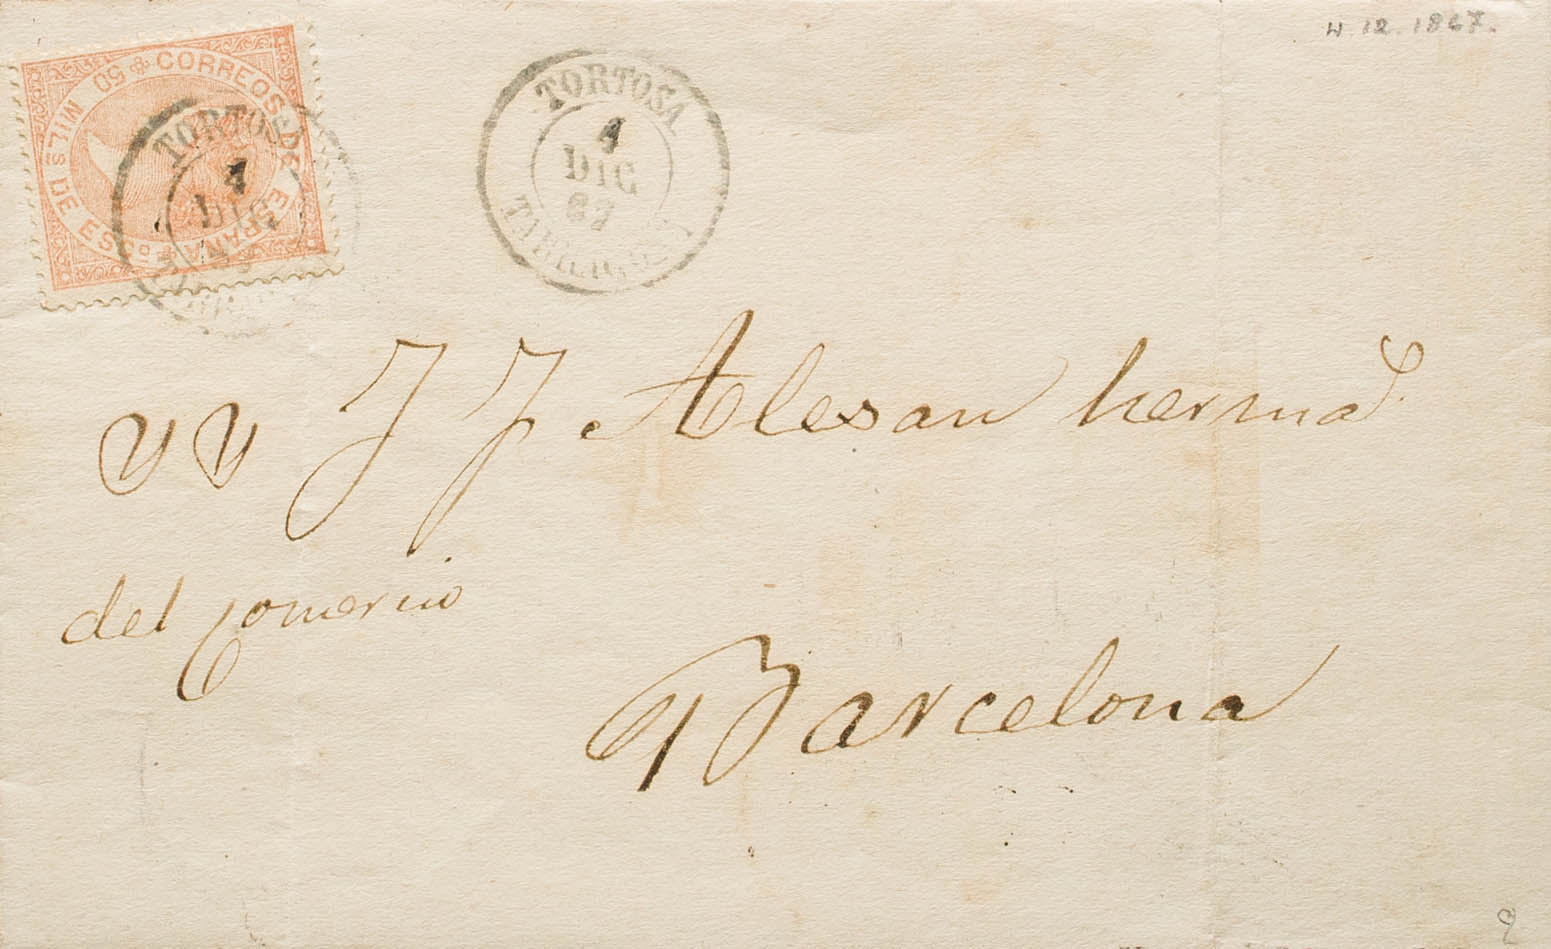 4.12.1867.
CORREOS DE ESPAÑA 50 MILS DE ESCO
TORTOSA
4
DIC
TORTOSA
4
DIC
67
TARRAGONA
J J Alexan hermas
del Comercio
Barcelona